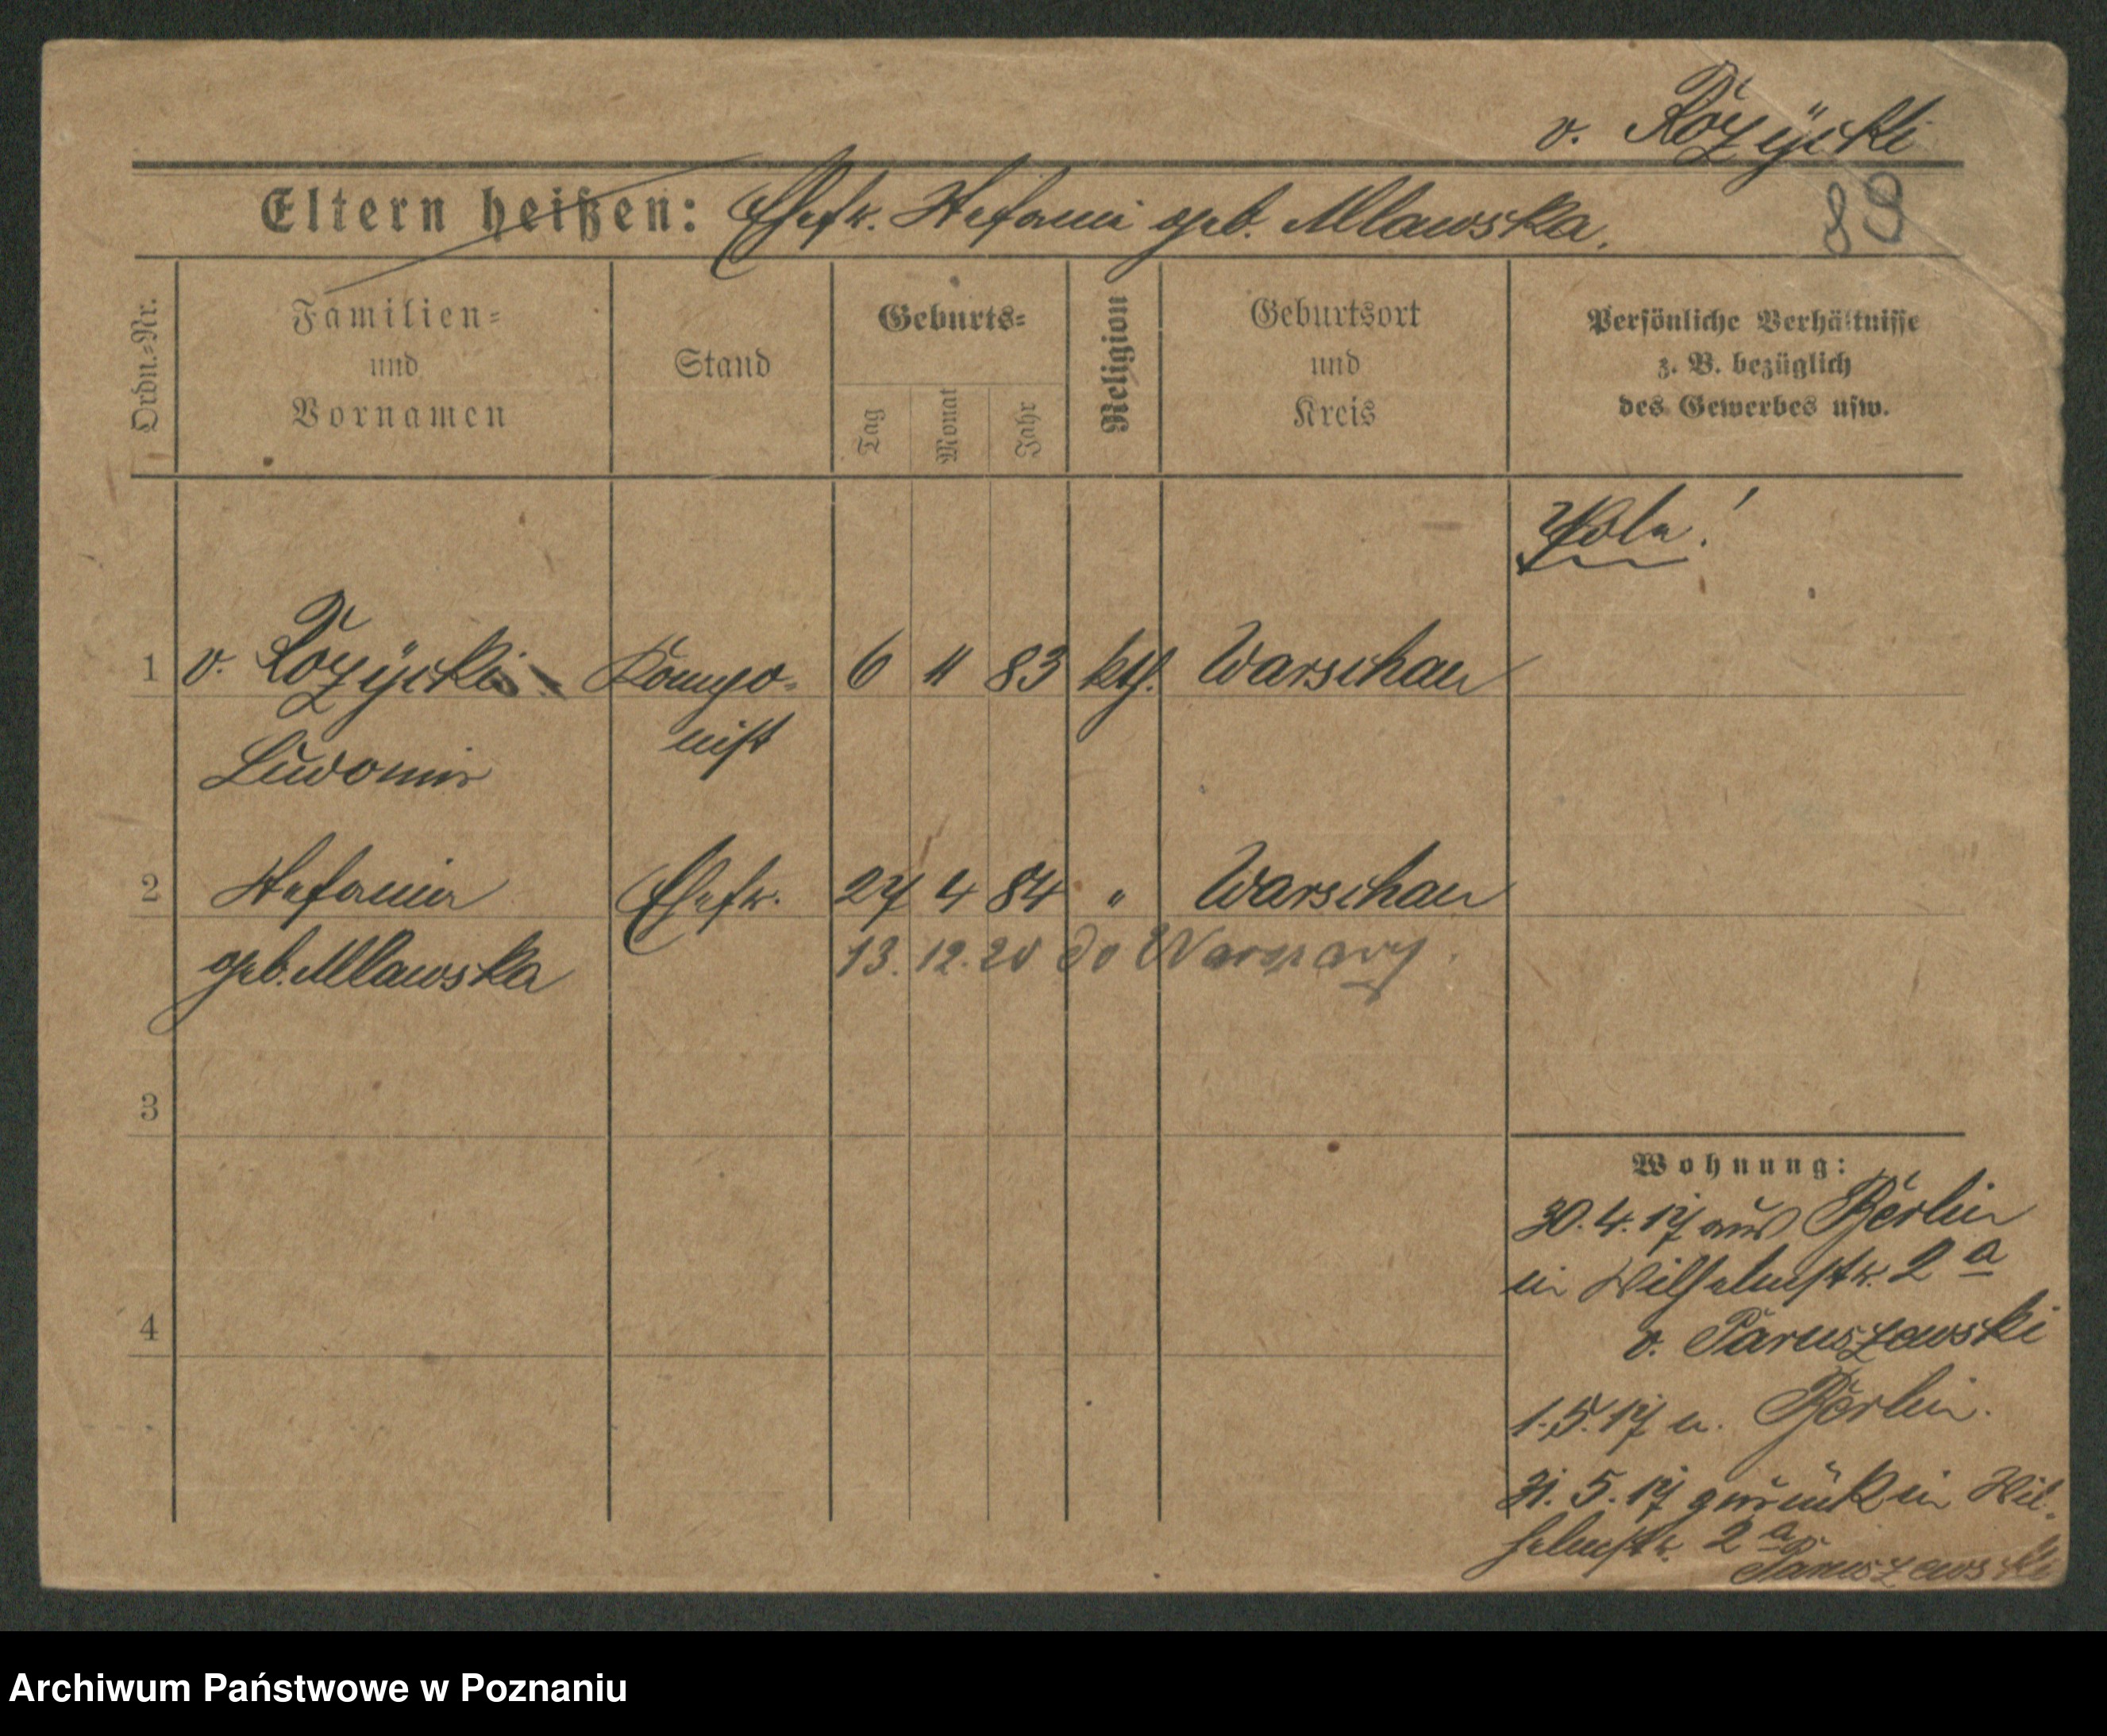 v. Rózÿcki
Eltern heißen: Ehefr. Stefani geb. Mlawska.
83
Ordn.-Nr.
Familien-
und
Vornamen
Stand
Geburts-
Tag
Monat
Jahr
Religion
Geburtsort
und
Kreis
Persönliche Verhältnisse
z. B. bezüglich
des Gewerbes usw.
Pole!
1 v. Rózÿcki Kompo- 6 11 83 kth. Warschau
nist
Ludomir
2 Stefania Ehefr. 27 4 84 " Warschau
13. 12. 20 do Warszawy.
geb. Mlawska
3
Wohnung:
30. 4. 17 aus Berlin
in Wilhelmstr. 2 a
4
v. Paruszewski
1. 5. 17 n. Berlin.
31. 5. 17 zurück in Wil-
helmstr. 2 a
Paruszewski
Archiwum Państwowe w Poznaniu